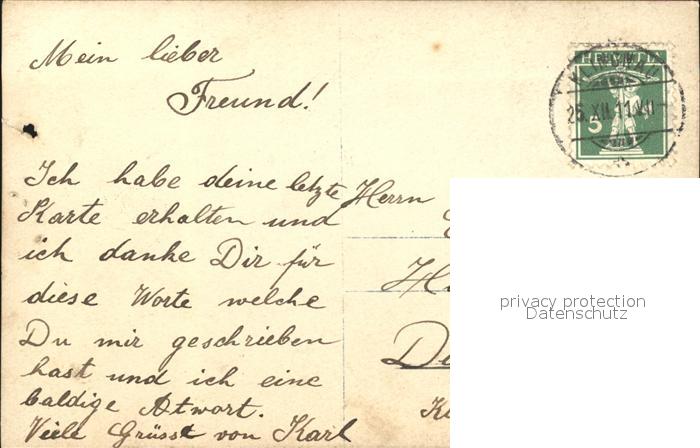 Mein lieber
Freund!
Ich habe deine letzte
Karte erhalten und
ich danke Dir für
diese Worte welche
Du mir geschrieben
hast und ich eine
baldige Atwort.
Viele Grüsst von Karl
Herrn
HELVETIA
KLINGNAU
26.XII.11
5
privacy protection
Datenschutz